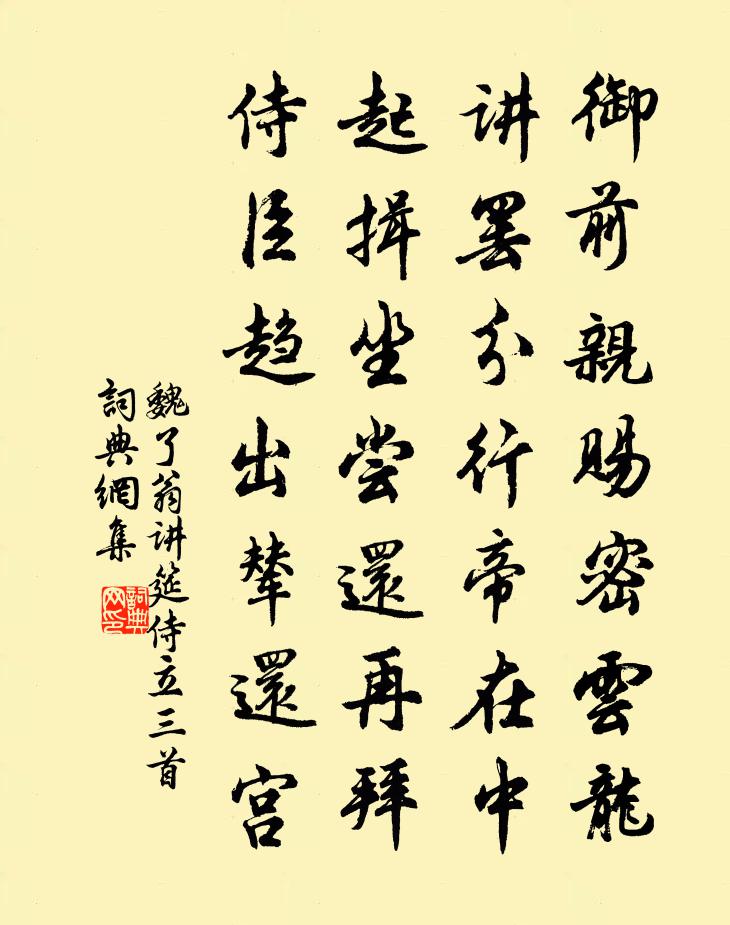 御前親賜密雲龍
讲罢分行帝在中
起揖坐尝還再拜
侍臣趋出辇還宫
魏了翁讲筵侍立三首
詞典網集
詞典网印